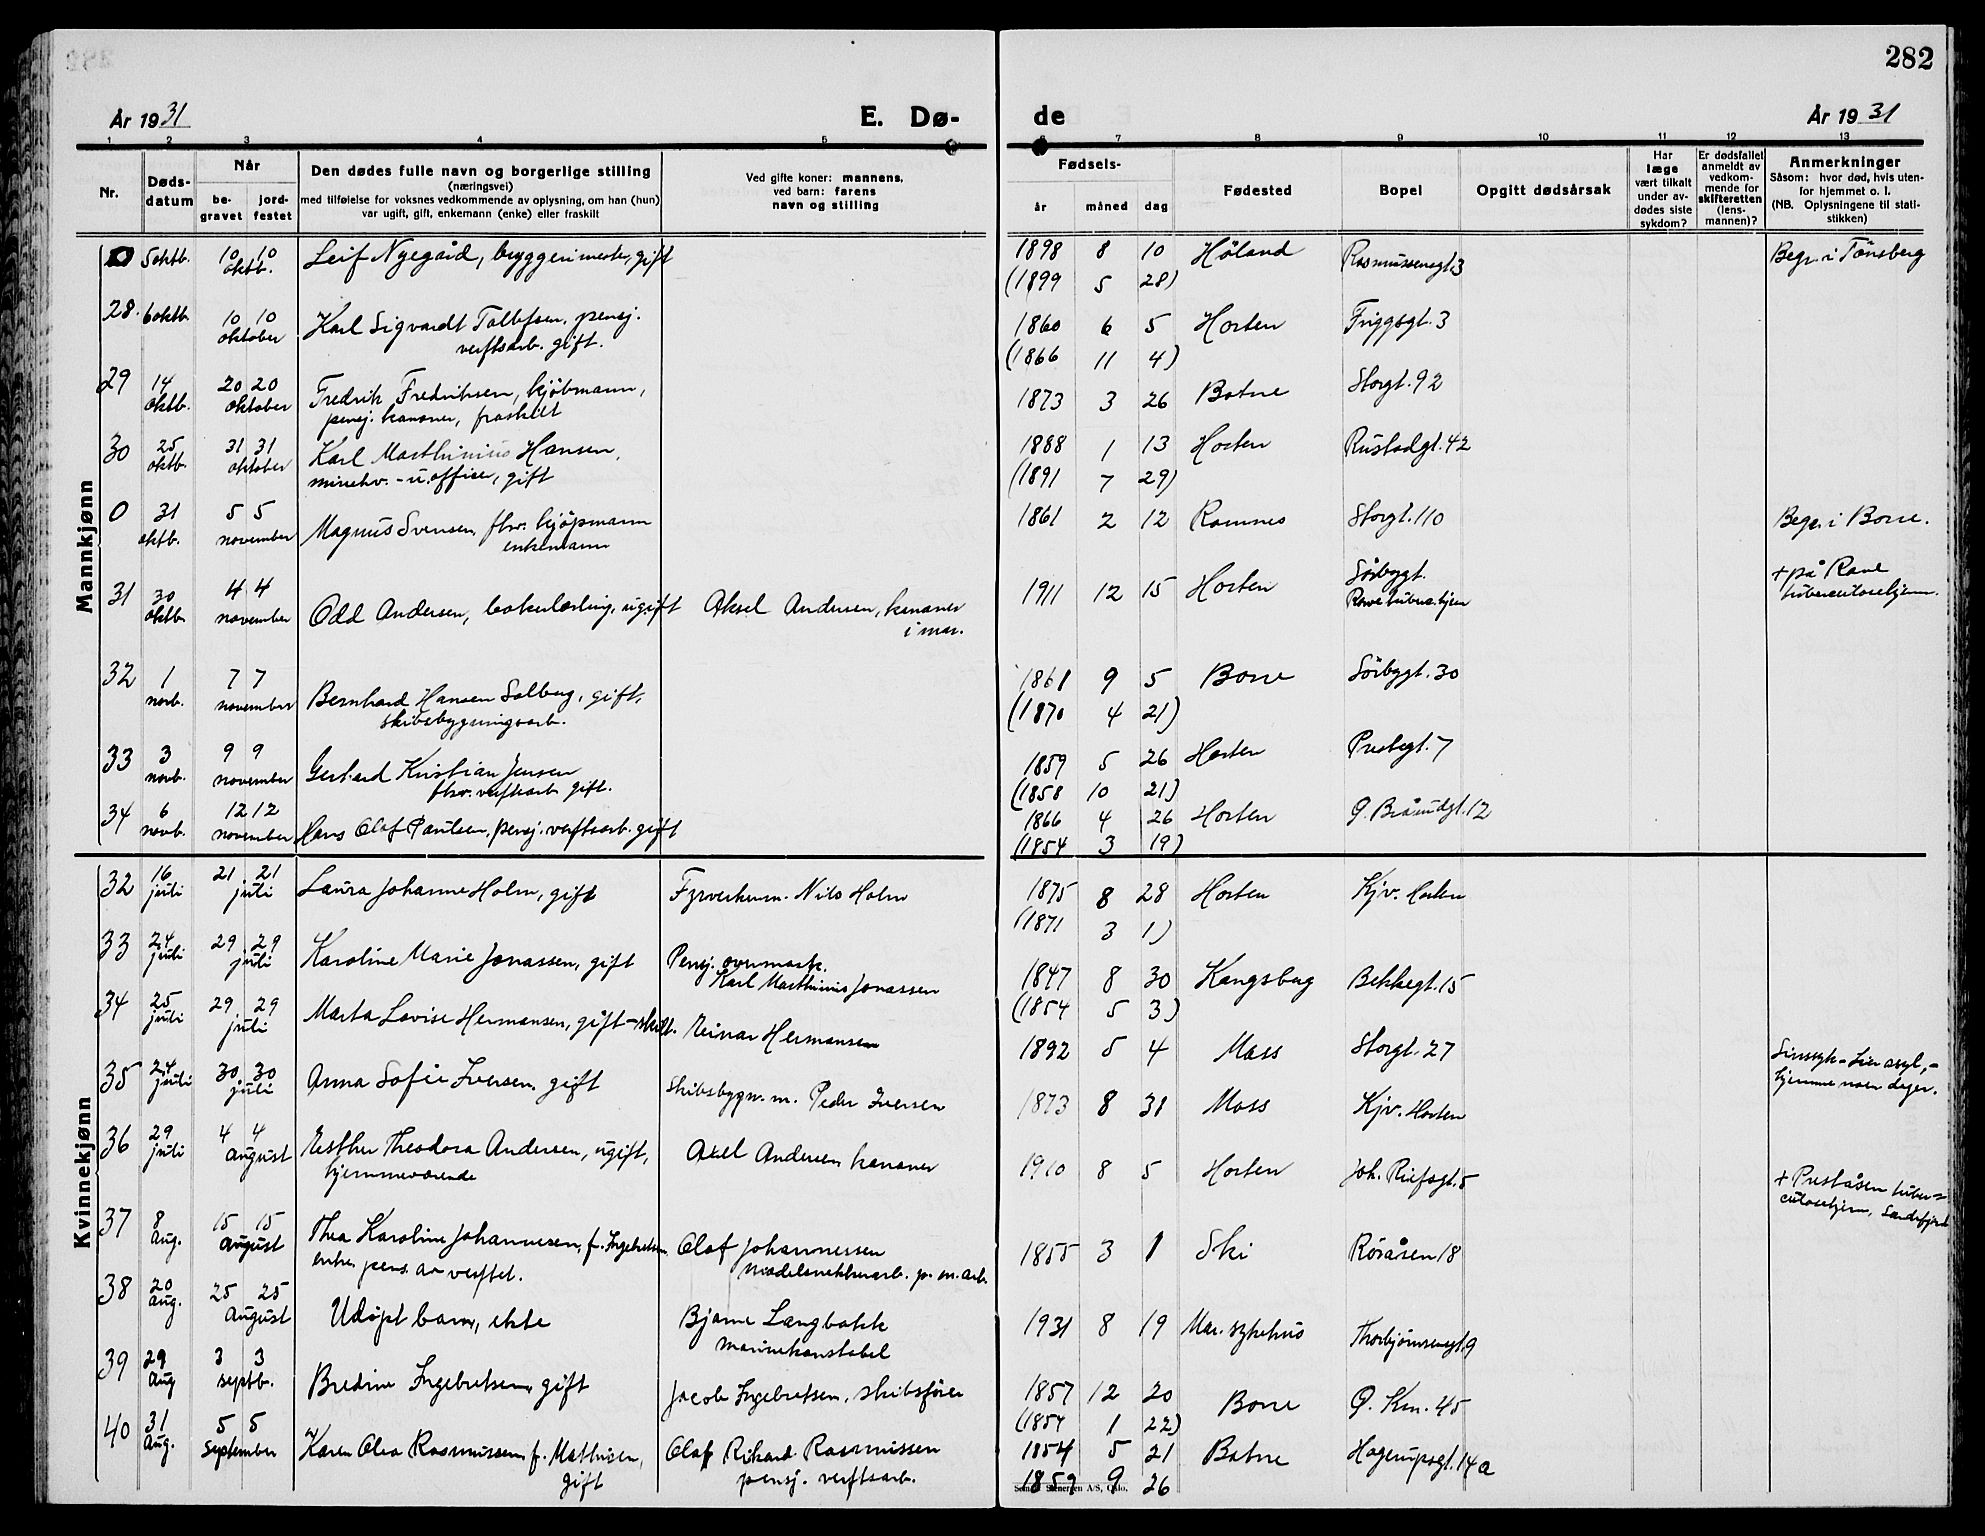 282
År 1931 E. Dø- de År 1931
1 2 3 4 5 6 7 8 9 10 11 12 13
Nr. Dødsdatum Når begravet jordfestet
Den dødes fulle navn og borgerlige stilling
(næringsvei)
med tilføielse for voksnes vedkommende av oplysning, om han (hun)
var ugift, gift, enkemann (enke) eller fraskilt
Ved gifte koner: mannens,
ved barn: farens
navn og stilling
Fødsels-
år måned dag
Fødested Bopel Opgitt dødsårsak
Har læge vært tilkalt under avdødes siste sykdom?
Er dødsfallet anmeldt av vedkommende for skifteretten (lensmannen)?
Anmerkninger
Såsom: hvor død, hvis utenfor hjemmet o. l.
(NB. Oplysningene til statistikken)
Mannkjønn
0 5 oktb. 10 10 oktb. Leif Nyegård, byggerimester, gift 1898 8 10 Høland Rasmussensgt. 3 Begr. i Tønsberg
(1899 5 28)
28. 6 oktb. 10 10 oktober Karl Sigvardt Tollefsen, pensj. 1860 6 5 Horten Friggsgt. 3
verftsarb. gift. (1866 11 4)
29 14 oktb. 20 20 oktober Fredrik Fredriksen, kjøbmann, 1873 3 26 Botne Storgt. 92
pensj. kanoner, fraskilt
30 25 oktb. 31 31 oktober Karl Marthinius Hansen, 1888 1 13 Horten Rustadgt. 42
minekv. - u.officer, gift (1891 7 29)
0 31 oktb. 5 5 november Magnus Svensen, fhv. kjøpmann 1861 2 12 Ramnes Storgt. 110 Begr. i Borre.
enkemann
31 30 oktb. 4 4 november Odd Andersen, bakerlærling, ugift Aksel Andersen, kanoner 1911 12 15 Horten Sørbygt. + på Rove
i mar. Rove tuberc.hjem tuberculosehjem.
32 1 novb. 7 7 november Bernhard Hansen Solberg, gift, 1861 9 5 Borre Sørbygt. 30
skibsbygningsarb. (1870 4 21)
33 3 novb. 9 9 november Gerhard Kristian Jensen 1859 5 26 Horten Prestegt. 7
fhv. verftsarb. gift. (1858 10 21)
34 6 novb. 12 12 november Hans Olaf Paulsen, pensj. verftsarb. gift 1866 4 26 Horten 12
(1854 3 19)
Kvinnekjønn
32 16 juli 21 21 juli Laura Johanne Holm, gift Fyrverkerm. Nils Holm 1875 8 28 Horten Kjv. Horten
(1871 3 1)
33 24 juli 29 29 juli Karoline Marie Jonassen, gift Pensj. overmask. 1847 8 30 Kongsberg Bekkegt. 15
Karl Marthinius Jonassen (1854 5 3)
34 25 juli 29 29 juli Marta Lovise Hermansen, gift - skilt. Einar Hermansen 1892 5 4 Moss Storgt. 27 Sinssyk - Lier asyl, -
hjemme noen dager.
35 24 juli 30 30 juli Anna Sofie Iversen, gift Skibsbygn. m. Peder Iversen 1873 8 31 Moss Kjv. Horten
36 29 juli 4 4 august Esther Theodora Andersen, ugift, Axel Andersen kanoner 1910 8 5 Horten Joh. 5 + Preståsen tuber=
hjemmeværende culosehjem, Sandefjord
37 8 aug. 15 15 august Thea Karoline Johannesen, f. Ingebretsen, Olaf Johannessen 1855 3 1 Ski Røråsen 18
enke pens. av verftet. modelsnekkerarb. p. m. arb.
38 20 aug. 25 25 august Udøpt barn, ekte Bjarne Langbakk 1931 8 19 Mar. sykehus Thorbjørnsensgt. 9
marinekonstabel
39 29 aug 3 3 septb. Bredine Ingebretsen, gift Jacob Ingebretsen, skibsfører 1857 12 20 Borre 45
(1857 1 22)
40 31 aug. 5 5 september Karen Olea Rasmussen f. Mathisen, Olaf Rikard Rasmussen 1854 5 21 Botne Hagerupsgt. 14a
gift pensj. verftsarb. 1859 9 26